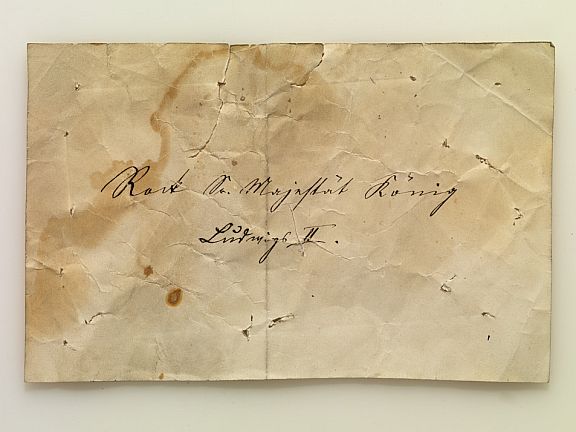 Rock Sr. Majestät König
Ludwigs II.